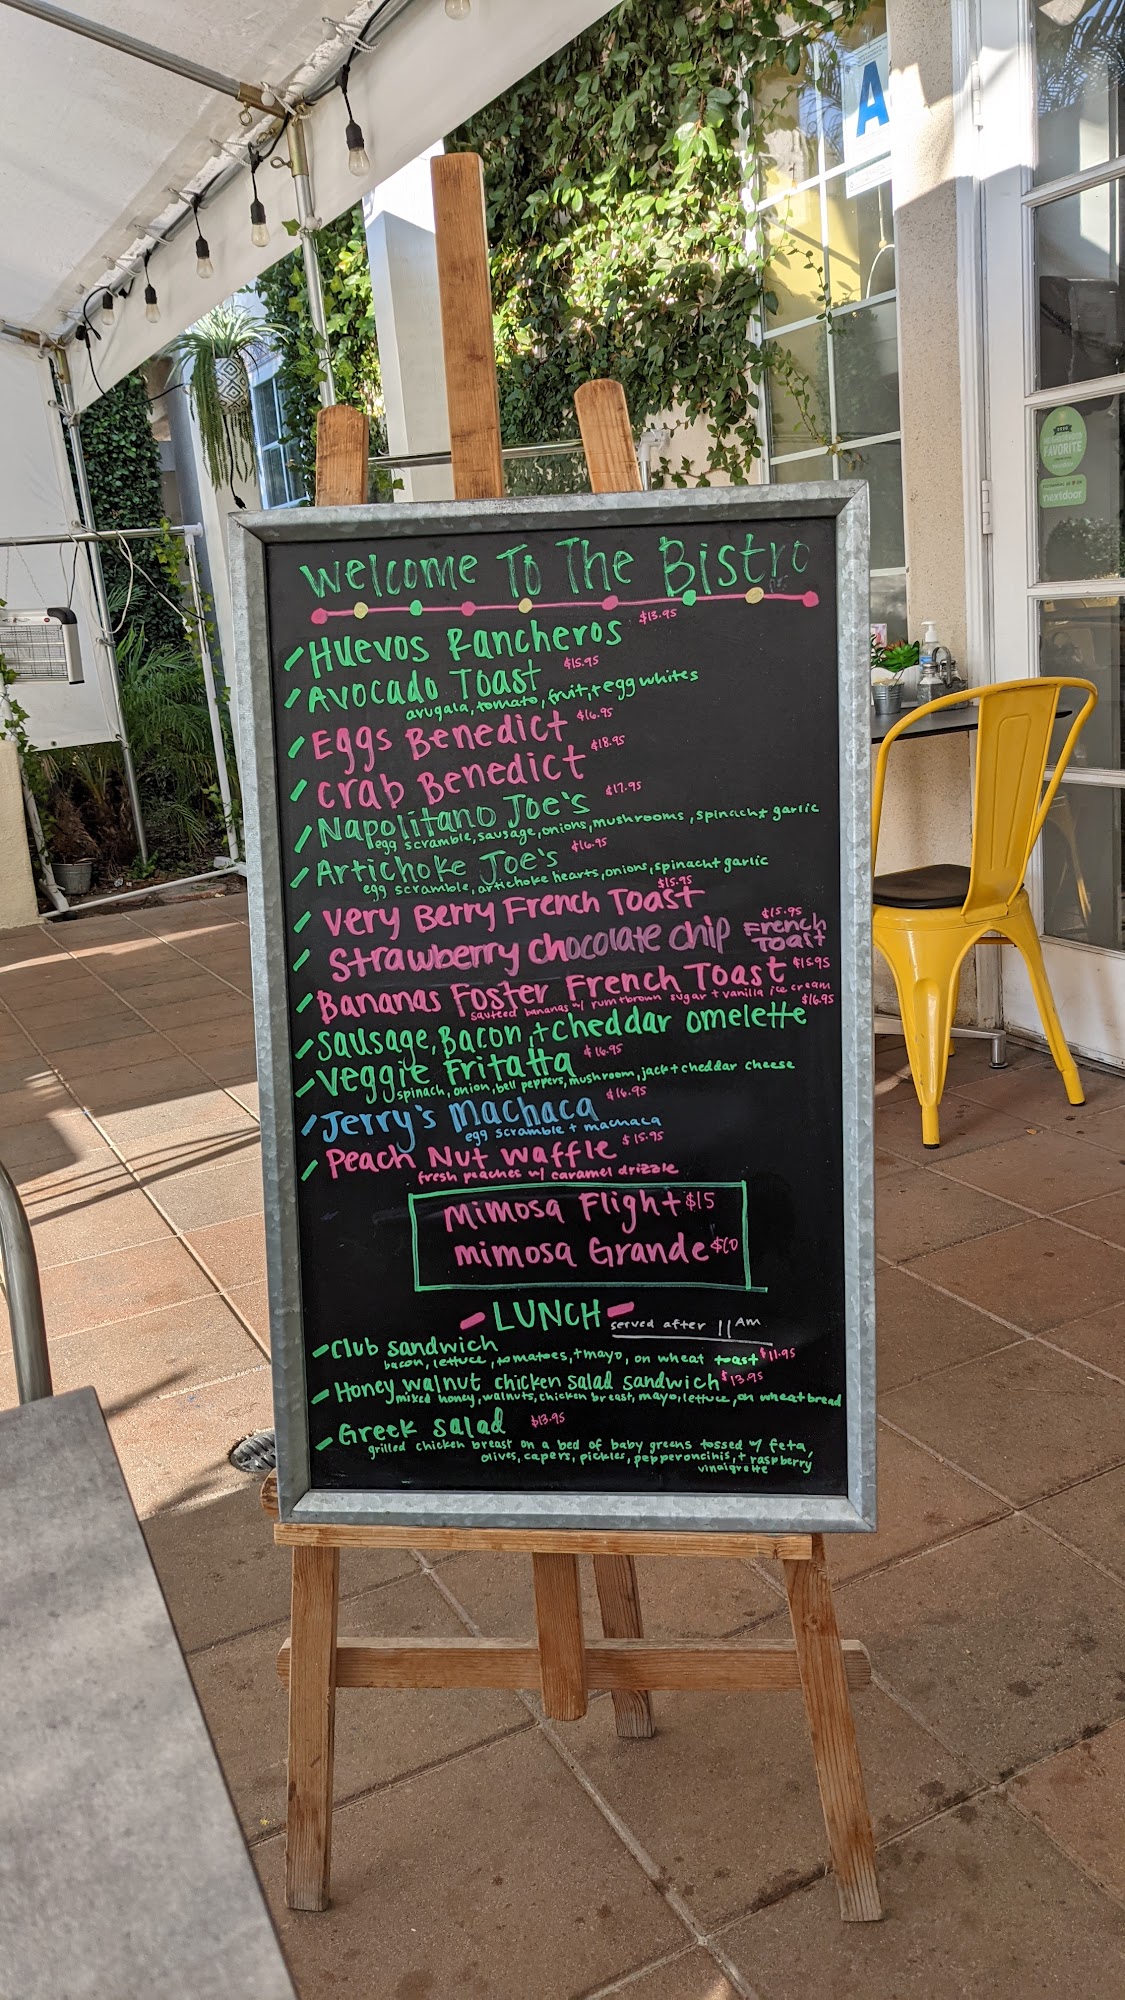 A
FAVORITE
nextdoor
Welcome To The Bistro
Huevos Rancheros $13.95
Avocado Toast $15.95
arugala, tomato, fruit, + egg whites
Eggs Benedict $16.95
Crab Benedict $18.95
Napolitano Joe's $17.95
egg scramble, sausage, onions, mushrooms, spinach + garlic
Artichoke Joe's $16.95
egg scramble, artichoke hearts, onions, spinach + garlic
Very Berry French Toast $15.95
Strawberry chocolate chip French Toast $15.95
Bananas Foster French Toast $15.95
sauteed bananas w/ rum + brown sugar + vanilla ice cream
Sausage, Bacon, + cheddar omelette $16.95
Veggie Fritatta $16.95
spinach, onion, bell peppers, mushroom, jack + cheddar cheese
Jerry's Machaca $16.95
egg scramble + machaca
Peach Nut Waffle $15.95
fresh peaches w/ caramel drizzle
Mimosa Flight $15
mimosa Grande $10
LUNCH served after 11 Am
Club sandwich
bacon, lettuce, tomatoes, + mayo, on wheat toast $11.95
Honey walnut chicken salad sandwich $13.95
mixed honey, walnuts, chicken breast, mayo, lettuce, on wheat bread
Greek salad $13.95
grilled chicken breast on a bed of baby greens tossed w/ feta,
olives, capers, pickles, pepperoncinis, + raspberry
vinaigrette